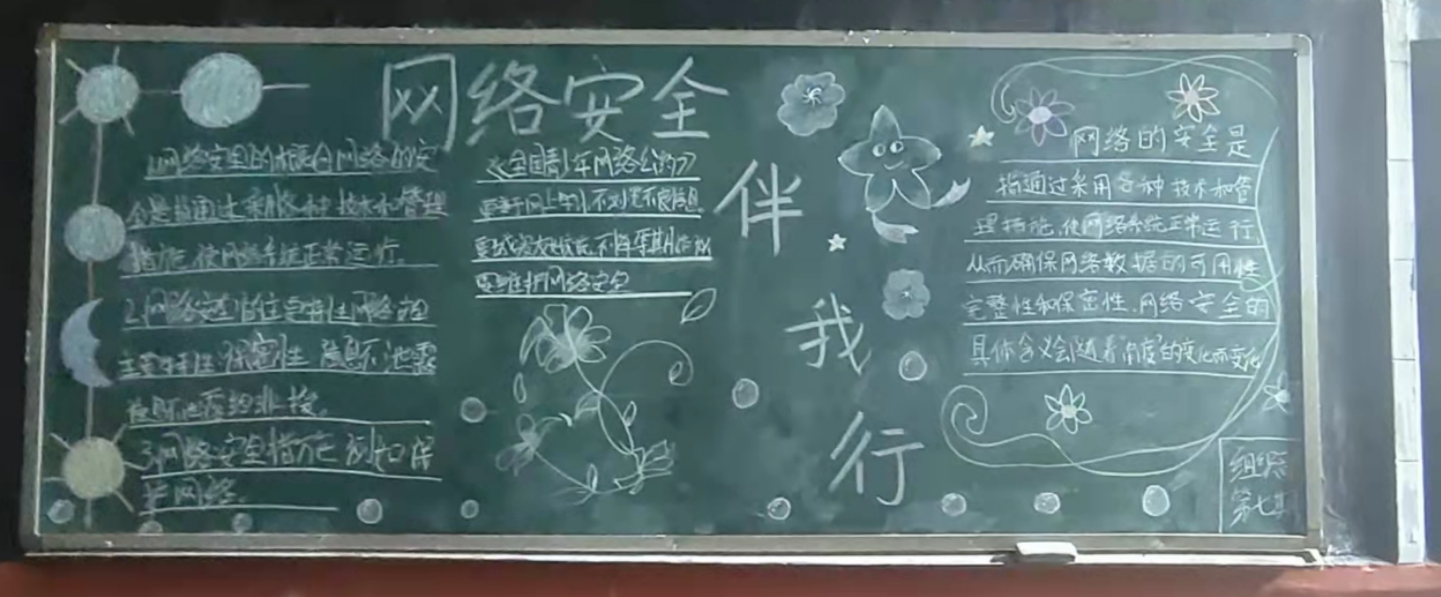 网络安全
伴
我
行
1.网络安全的概念网络的安
全是指通过采用各种技术和管理
措施,使网络系统正常运行。
2.网络安全的主要特性网络安全
主要特性:保密性 信息不泄露
3.网络安全措施
网络。
《全国青少年网络公约》
要善于网上学习,不浏览不良信息
要维护网络安全
网络的安全是
指通过采用各种技术和管
理措施,使网络系统正常运行,
从而确保网络数据的可用性
完整性和保密性.网络安全的
具体含义会随着角度的变化而变化
第七